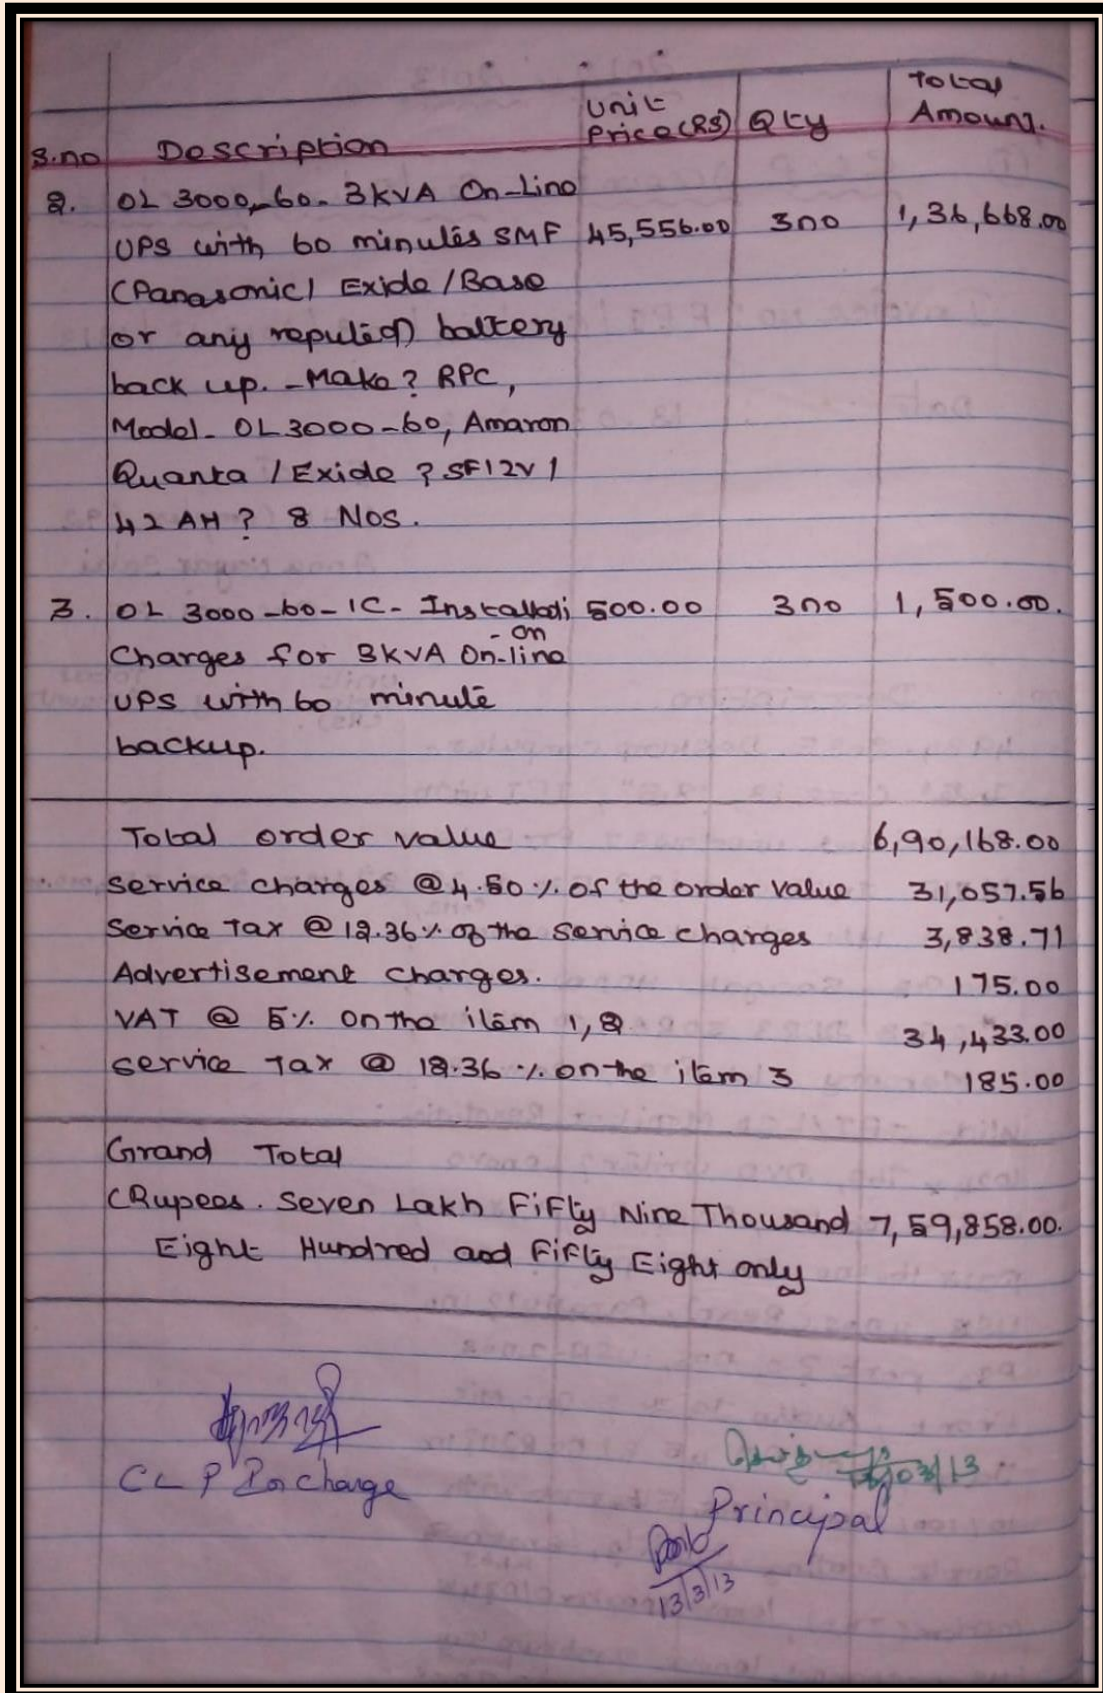 S.no Description Unit Price(RS) Qty Total Amount.
2. OL 3000-60- 3kVA On-Line
UPS with 60 minutes SMF 45,556.00 3no 1,36,668.00
(Panasonic/ Exide /Base
or any reputed) battery
back up. -Make? RPC,
Model- OL3000-60, Amaron
Quanta /Exide ? SF12V/
42 AH? 8 Nos.
3. OL 3000-60-IC- Installati 500.00 3no 1,500.00.
-on
Charges for 3kVA On-line
UPS with 60 minute
backup.
Total order value 6,90,168.00
Service charges @4.50% of the order value 31,057.56
Service Tax @12.36% of the service charges 3,838.71
Advertisement charges. 175.00
VAT @ 5% on the item 1,2 34,433.00
Service Tax @ 12.36 % on the item 3 185.00
Grand Total
(Rupees. Seven Lakh Fifty Nine Thousand 7,59,858.00.
Eight Hundred and Fifty Eight only
CLP In charge
13/03/13
Principal
13/3/13